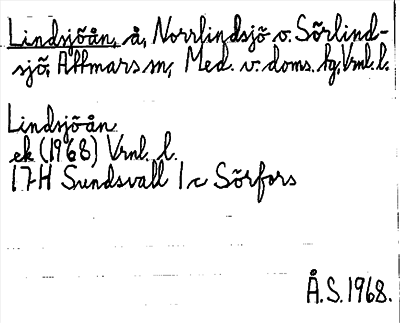 Lindsjöån, å, Norrlindsjö o. Sörlind-
sjö, Attmars sn, Med. v. doms. tg, Vrnl. l.
Lindsjöån
ek (1968) Vrnl. l.
17H Sundsvall 1 c Sörfors
Å.S. 1968.